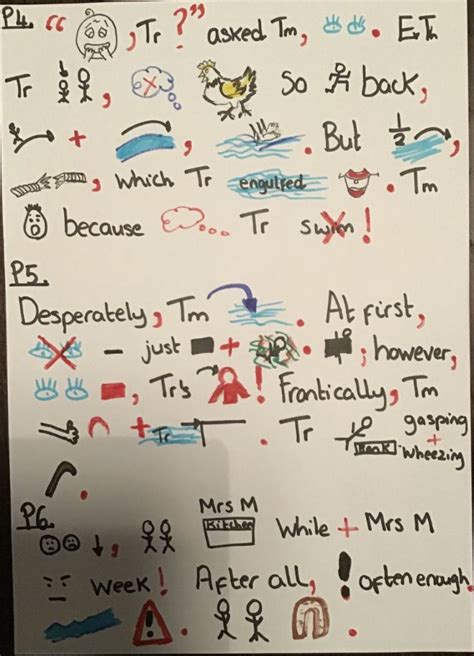 P4. " , Tr ?" asked Tm, . E.Th
Tr , So back,
+ , . But 1/2 ,
, which Tr engulfed . Tm
because Tr swim!
P5.
Desperately, Tm . At first,
– just + . ; however,
, Tr's ! Frantically, Tm
+ Tr . Tr Bank gasping + wheezing
.
P6. Mrs M
↓, Kitchen While + Mrs M
week! After all, ! often enough.
! . .